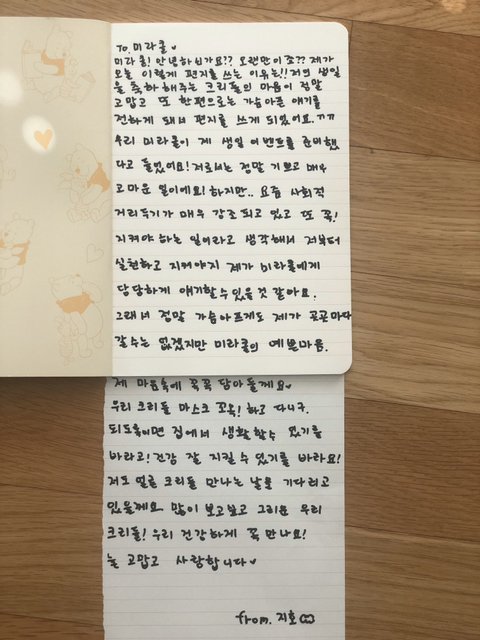 To. 미라클♥
미라클! 안녕하신가요?? 오랜만이죠?? 제가
오늘 이렇게 편지를 쓰는 이유는!! 저의 생일
을 축하해주는 크리들의 마음이 정말
고맙고 또 한편으로는 가슴아픈 얘기를
전하게 돼서 편지를 쓰게 되었어요.ㄲㄲ
우리 미라클이 제 생일 이벤트를 준비했
다고 들었어요! 저로서는 정말 기쁘고 매우
고마운 일이에요! 하지만.. 요즘 사회적
거리두기가 매우 강조되고 있고 또 꼭!
지켜야 하는 일이라고 생각해서 저부터
실천하고 지켜야지 제가 미라클에게
당당하게 얘기할 수 있을 것 같아요.
그래서 정말 가슴아프게도 제가 곳곳마다
갈수는 없겠지만 미라클의 예쁜마음.
제 마음속에 꼭꼭 담아둘게요♥
우리 크리들 마스크 꼬옥! 하고 다니구.
되도록이면 집에서 생활할수 있기를
바라고! 건강 잘 지킬 수 있기를 바라요!
저도 얼른 크리들 만나는 날을 기다리고
있을께요. 많이 보고싶고 그리운 우리
크리들! 우리 건강하게 꼭 만나요!
늘 고맙고 사랑합니다♥
from. 지호